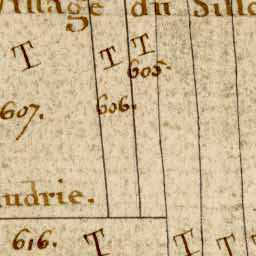 village du Sillo
T T T
605.
607. 606.
udrie.
616. T T T T